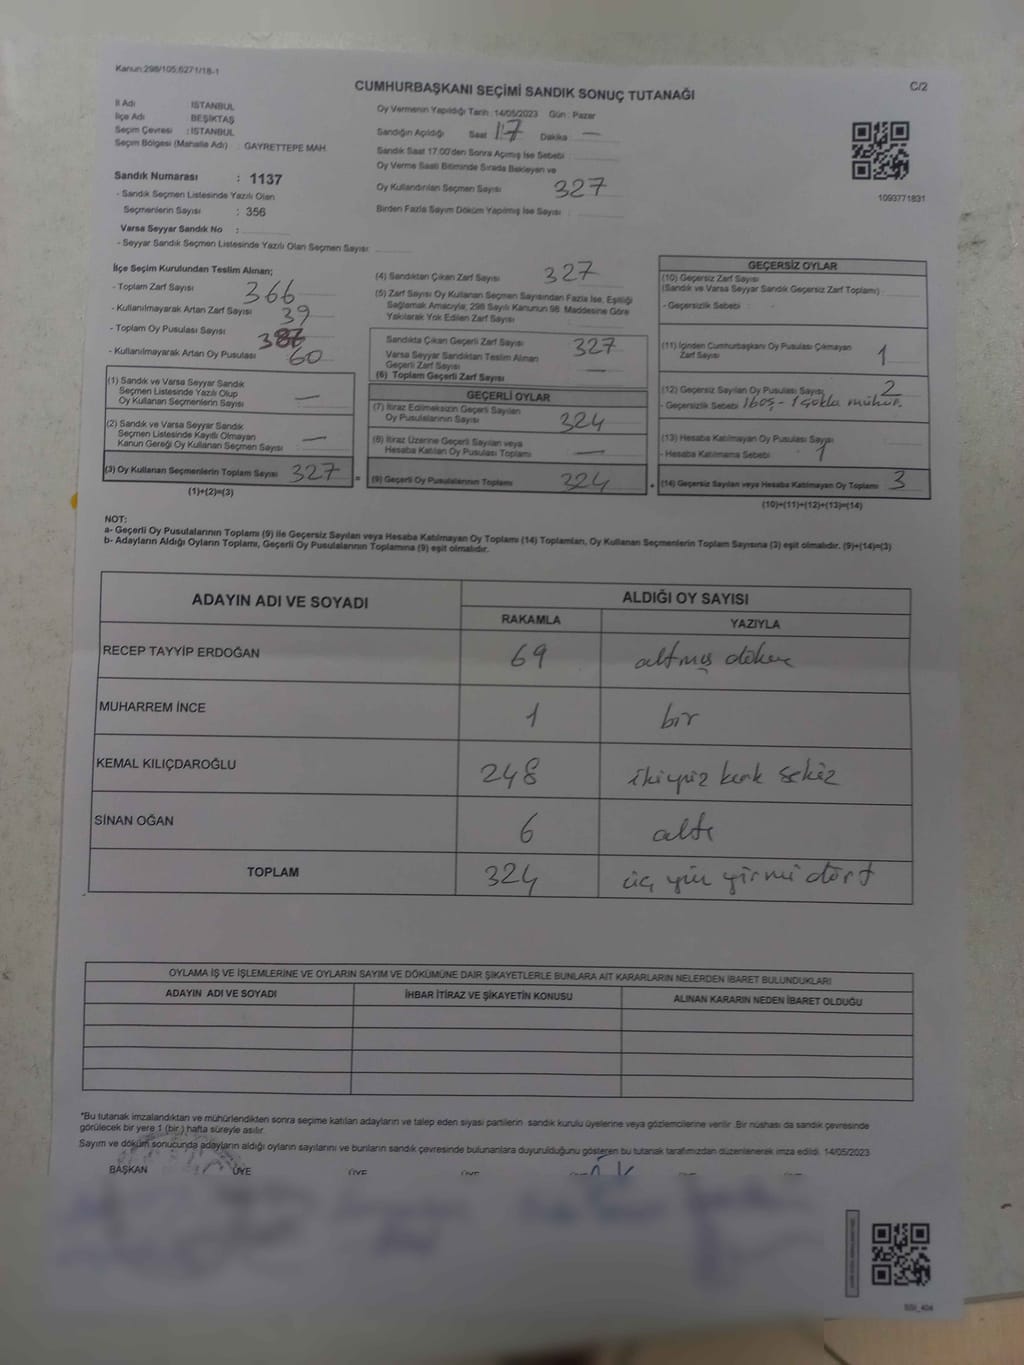 Kanun:298/105;6271/18-1
C/2
CUMHURBAŞKANI SEÇİMİ SANDIK SONUÇ TUTANAĞI
İl Adı İSTANBUL
İlçe Adı BEŞİKTAŞ
Seçim Çevresi : İSTANBUL
Seçim Bölgesi (Mahalle Adı) : GAYRETTEPE MAH.
Sandık Numarası : 1137
- Sandık Seçmen Listesinde Yazılı Olan
Seçmenlerin Sayısı : 356
Varsa Seyyar Sandık No :
- Seyyar Sandık Seçmen Listesinde Yazılı Olan Seçmen Sayısı:
Oy Vermenin Yapıldığı Tarih : 14/05/2023 Gün : Pazar
Sandığın Açıldığı Saat 17 Dakika : —
Sandık Saat 17:00'den Sonra Açılmış İse Sebebi :
Oy Verme Saati Bitiminde Sırada Bekleyen ve
Oy Kullandırılan Seçmen Sayısı 327
Birden Fazla Sayım Döküm Yapılmış İse Sayısı :
1093771831
İlçe Seçim Kurulundan Teslim Alınan;
- Toplam Zarf Sayısı 366
- Kullanılmayarak Artan Zarf Sayısı 39
- Toplam Oy Pusulası Sayısı
- Kullanılmayarak Artan Oy Pusulası 60
(1) Sandık ve Varsa Seyyar Sandık
Seçmen Listesinde Yazılı Olup
Oy Kullanan Seçmenlerin Sayısı —
(2) Sandık ve Varsa Seyyar Sandık
Seçmen Listesinde Kayıtlı Olmayan
Kanun Gereği Oy Kullanan Seçmen Sayısı —
(3) Oy Kullanan Seçmenlerin Toplam Sayısı 327
(1)+(2)=(3)
(4) Sandıktan Çıkan Zarf Sayısı 327
(5) Zarf Sayısı Oy Kullanan Seçmen Sayısından Fazla İse, Eşitliği
Sağlamak Amacıyla; 298 Sayılı Kanunun 98. Maddesine Göre
Yakılarak Yok Edilen Zarf Sayısı :
Sandıkta Çıkan Geçerli Zarf Sayısı 327
Varsa Seyyar Sandıktan Teslim Alınan
Geçerli Zarf Sayısı —
(6) Toplam Geçerli Zarf Sayısı
GEÇERLİ OYLAR
(7) İtiraz Edilmeksizin Geçerli Sayılan
Oy Pusulalarının Sayısı 324
(8) İtiraz Üzerine Geçerli Sayılan veya
Hesaba Katılan Oy Pusulası Toplamı —
(9) Geçerli Oy Pusulalarının Toplamı 324
GEÇERSİZ OYLAR
(10) Geçersiz Zarf Sayısı
(Sandık ve Varsa Seyyar Sandık Geçersiz Zarf Toplamı)
- Geçersizlik Sebebi :
(11) İçinden Cumhurbaşkanı Oy Pusulası Çıkmayan
Zarf Sayısı 1
(12) Geçersiz Sayılan Oy Pusulası Sayısı 2
- Geçersizlik Sebebi 1 boş - 1 çokla mühür.
(13) Hesaba Katılmayan Oy Pusulası Sayısı
- Hesaba Katılmama Sebebi : 1
(14) Geçersiz Sayılan veya Hesaba Katılmayan Oy Toplamı 3
(10)+(11)+(12)+(13)=(14)
NOT:
a- Geçerli Oy Pusulalarının Toplamı (9) ile Geçersiz Sayılan veya Hesaba Katılmayan Oy Toplamı (14) Toplamları, Oy Kullanan Seçmenlerin Toplam Sayısına (3) eşit olmalıdır. (9)+(14)=(3)
b- Adayların Aldığı Oyların Toplamı, Geçerli Oy Pusulalarının Toplamına (9) eşit olmalıdır.
ADAYIN ADI VE SOYADI ALDIĞI OY SAYISI
RAKAMLA YAZIYLA
RECEP TAYYİP ERDOĞAN 69 altmış dokuz
MUHARREM İNCE 1 bir
KEMAL KILIÇDAROĞLU 248 ikiyüz kırk sekiz
SİNAN OĞAN 6 altı
TOPLAM 324 üç yüz yirmi dört
OYLAMA İŞ VE İŞLEMLERİNE VE OYLARIN SAYIM VE DÖKÜMÜNE DAİR ŞİKAYETLERLE BUNLARA AİT KARARLARIN NELERDEN İBARET BULUNDUKLARI
ADAYIN ADI VE SOYADI İHBAR İTİRAZ VE ŞİKAYETİN KONUSU ALINAN KARARIN NEDEN İBARET OLDUĞU
*Bu tutanak imzalandıktan ve mühürlendikten sonra seçime katılan adayların ve talep eden siyasi partilerin sandık kurulu üyelerine veya gözlemcilerine verilir .Bir nüshası da sandık çevresinde
görülecek bir yere 1 (bir ) hafta süreyle asılır.
Sayım ve döküm sonucunda adayların aldığı oyların sayılarını ve bunların sandık çevresinde bulunanlara duyurulduğunu gösteren bu tutanak tarafımızdan düzenlenerek imza edildi. 14/05/2023
BAŞKAN ÜYE ÜYE
SSI_404